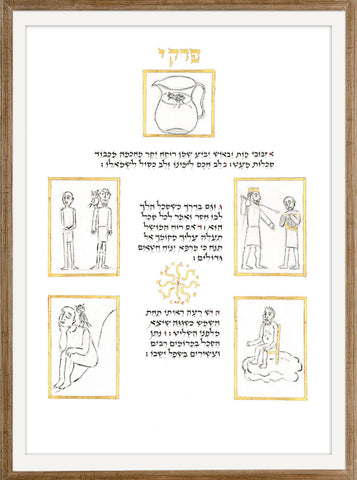 פרק י
א זבובי מות יבאיש יביע שמן רוקח יקר מחכמה מכבוד
סכלות מעט: ב לב חכם לימינו ולב כסיל לשמאלו:
ג וגם בדרך כשסכל הלך
לבו חסר ואמר לכל סכל
הוא: ד אם רוח המושל
תעלה עליך מקומך אל
תנח כי מרפא יניח חטאים
גדולים:
ה יש רעה ראיתי תחת
השמש כשגגה שיצא
מלפני השליט: ו נתן
הסכל במרומים רבים
ועשירים בשפל ישבו: